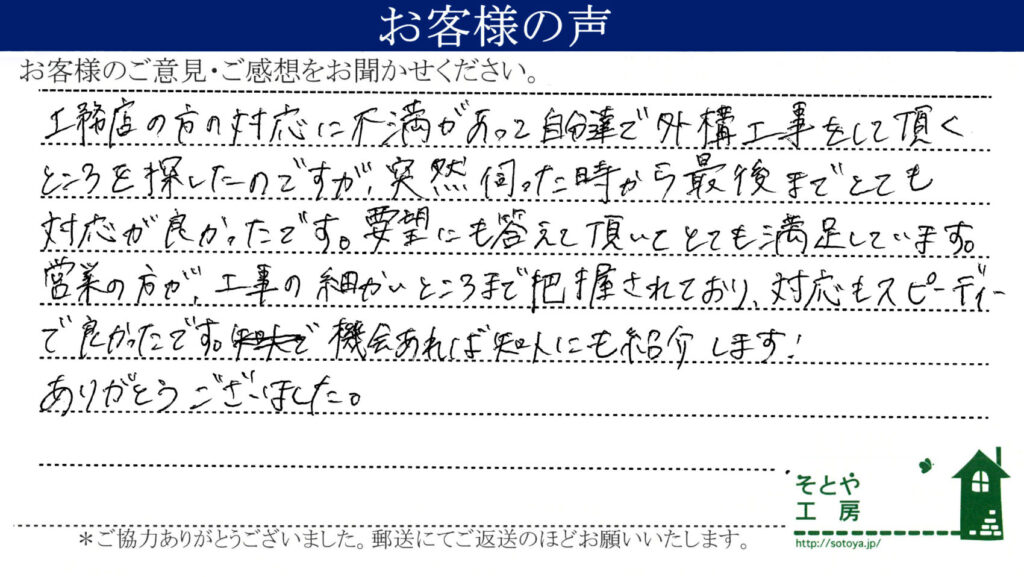 お客様の声
お客様のご意見・ご感想をお聞かせください。
工務店の方の対応に不満があって自分達で外構工事をして頂く
ところを探したのですが、突然伺った時から最後までとても
対応が良かったです。要望にも答えて頂いてとても満足しています。
営業の方が、工事の細かいところまで把握されており、対応もスピーディー
で良かったです。機会あれば知人にも紹介します!
ありがとうございました。
そとや
工房
http://sotoya.jp/
*ご協力ありがとうございました。郵送にてご返送のほどお願いいたします。